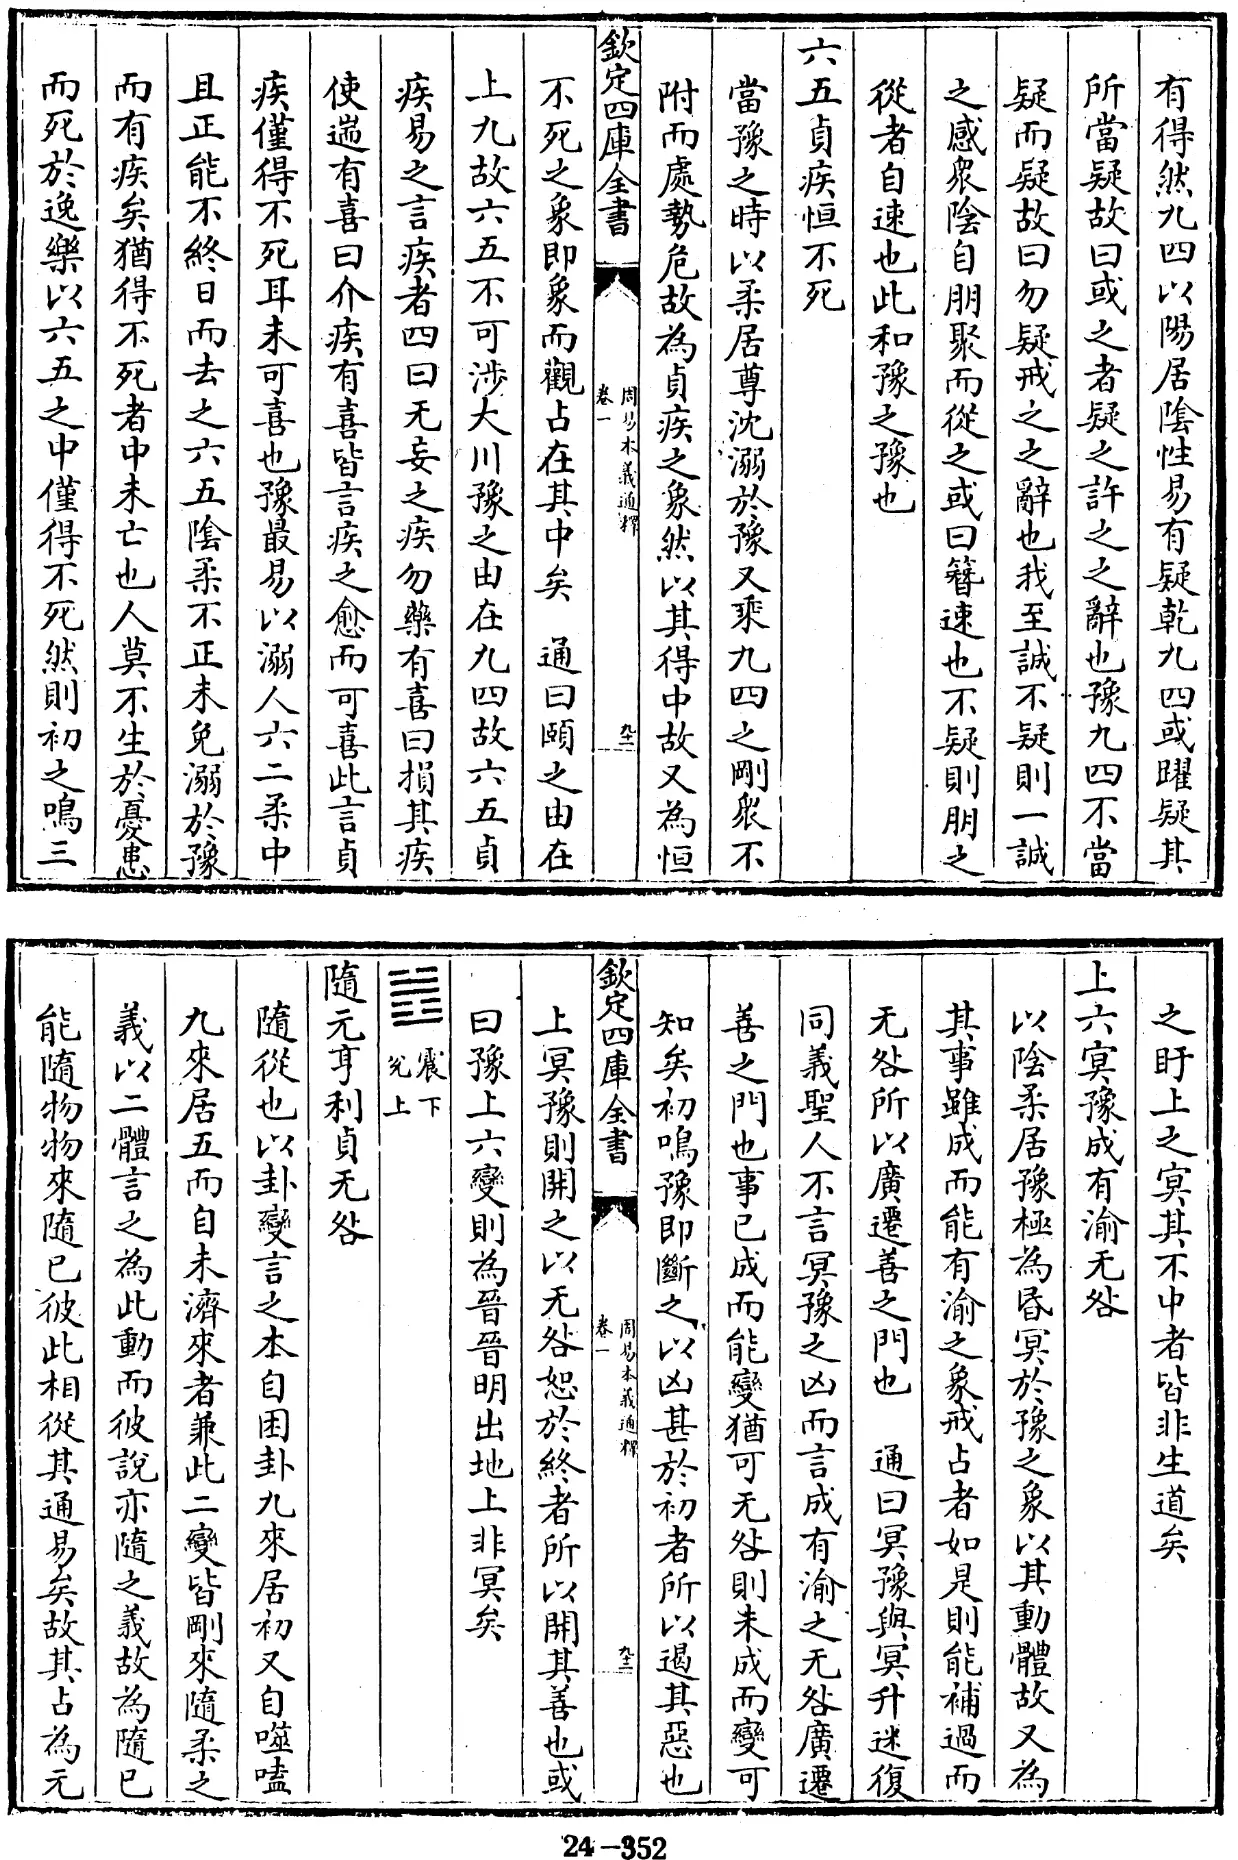 有得然九四以陽居陰性易有疑乾九四或躍疑其
所當疑故曰或之者疑之許之之辭也豫九四不當
疑而疑故曰勿疑戒之之辭也我至誠不疑則一誠
之感衆陰自朋聚而從之或曰簪速也不疑則朋之
從者自速也此和豫之豫也
六五貞疾恒不死
當豫之時以柔居尊沈溺於豫又乘九四之剛衆不
附而處勢危故為貞疾之象然以其得中故又為恒
欽定四庫全書
周易本義通釋
卷一
九十一
不死之象即象而觀占在其中矣　通曰頤之由在
上九故六五不可涉大川豫之由在九四故六五貞
疾易之言疾者四曰无妄之疾勿藥有喜曰損其疾
使遄有喜曰介疾有喜皆言疾之愈而可喜此言貞
疾僅得不死耳未可喜也豫最易以溺人六二柔中
且正能不終日而去之六五陰柔不正未免溺於豫
而有疾矣猶得不死者中未亡也人莫不生於憂患
而死於逸樂以六五之中僅得不死然則初之鳴三
之盱上之冥其不中者皆非生道矣
上六冥豫成有渝无咎
以陰柔居豫極為昏冥於豫之象以其動體故又為
其事雖成而能有渝之象戒占者如是則能補過而
无咎所以廣遷善之門也　通曰冥豫與冥升迷復
同義聖人不言冥豫之凶而言成有渝之无咎廣遷
善之門也事已成而能變猶可无咎則未成而變可
知矣初鳴豫即斷之以凶甚於初者所以遏其惡也
欽定四庫全書
周易本義通釋
卷一
上冥豫則開之以无咎恕於終者所以開其善也或
曰豫上六變則為晉晉明出地上非冥矣
震下
兌上
隨元亨利貞无咎
隨從也以卦變言之本自困卦九來居初又自噬嗑
九來居五而自未濟來者兼此二變皆剛來隨柔之
義以二體言之為此動而彼說亦隨之義故為隨已
能隨物物來隨已彼此相從其通易矣故其占為元
24-352